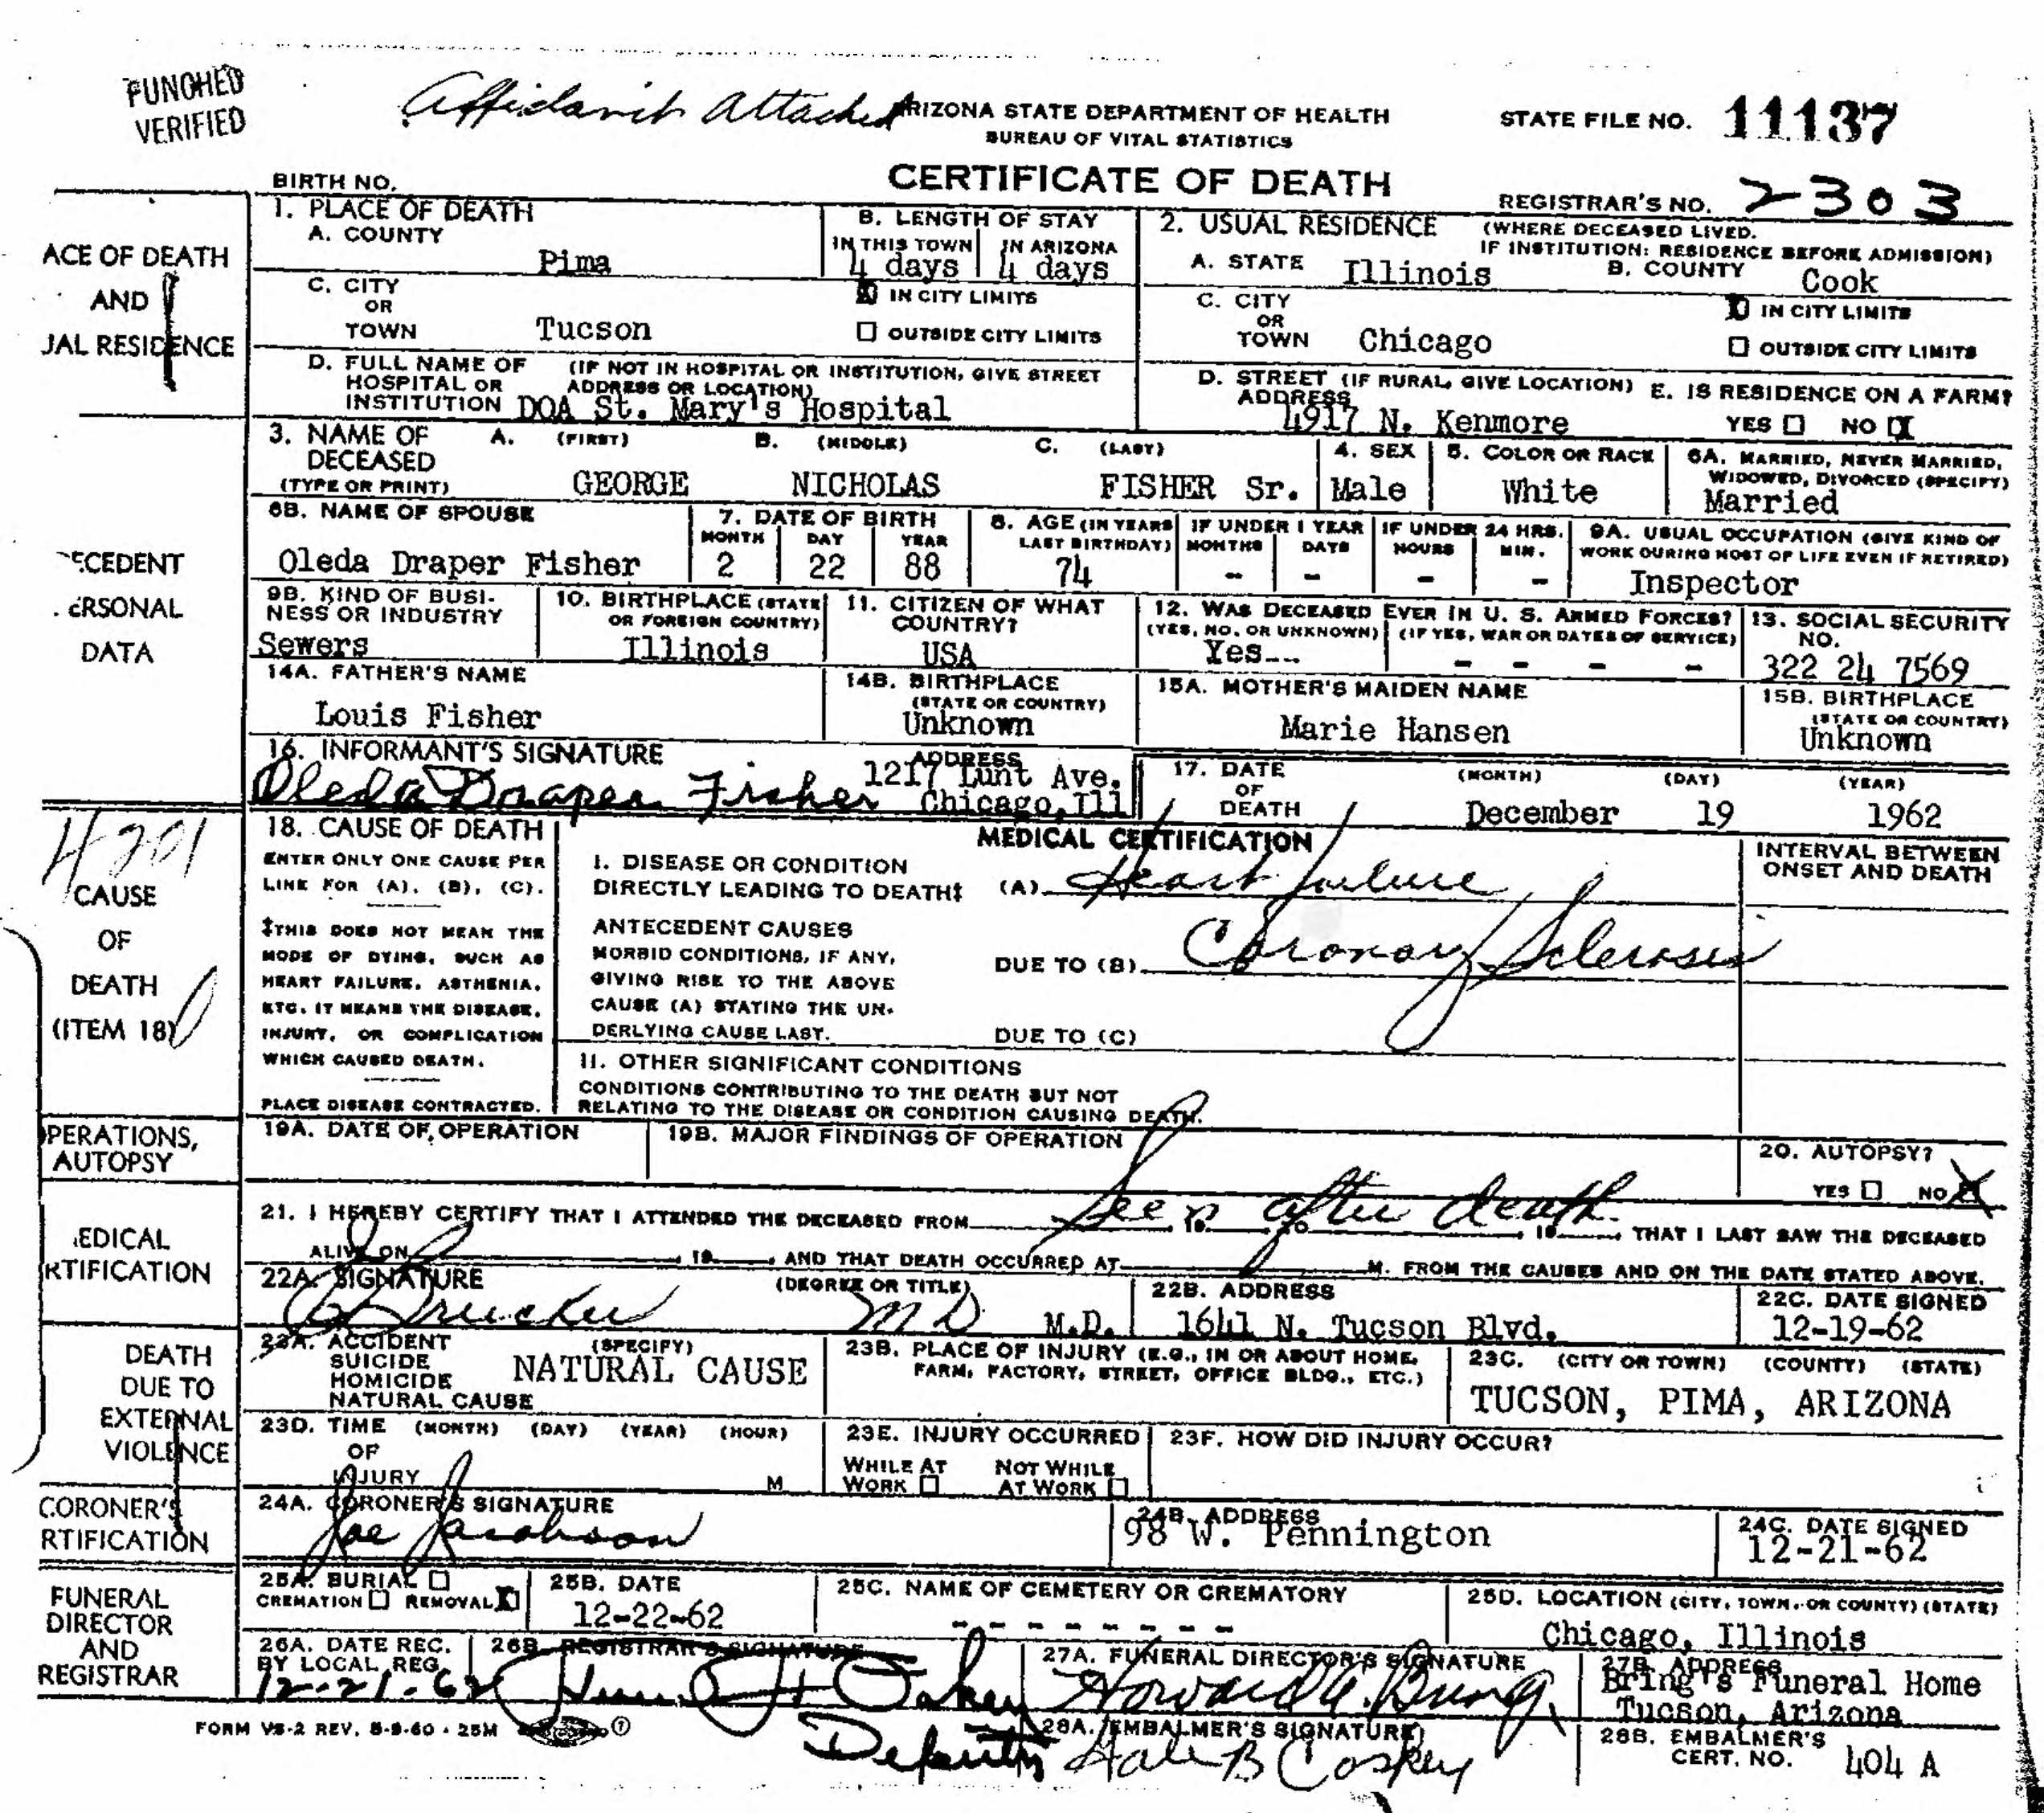 PUNCHED
VERIFIED
Affidavit Attached
ARIZONA STATE DEPARTMENT OF HEALTH
BUREAU OF VITAL STATISTICS
CERTIFICATE OF DEATH
STATE FILE NO. 11137
REGISTRAR'S NO. 2303
BIRTH NO.
ACE OF DEATH
AND
JAL RESIDENCE
1. PLACE OF DEATH
A. COUNTY
Pima
B. LENGTH OF STAY
IN THIS TOWN
4 days
IN ARIZONA
4 days
2. USUAL RESIDENCE (WHERE DECEASED LIVED.
IF INSTITUTION: RESIDENCE BEFORE ADMISSION)
A. STATE Illinois B. COUNTY Cook
C. CITY
OR
TOWN Tucson
IN CITY LIMITS
OUTSIDE CITY LIMITS
C. CITY
OR
TOWN Chicago
IN CITY LIMITS
OUTSIDE CITY LIMITS
D. FULL NAME OF
HOSPITAL OR
INSTITUTION
(IF NOT IN HOSPITAL OR INSTITUTION, GIVE STREET
ADDRESS OR LOCATION)
DOA St. Mary's Hospital
D. STREET (IF RURAL, GIVE LOCATION)
ADDRESS
4917 N. Kenmore
E. IS RESIDENCE ON A FARM?
YES NO X
ECEDENT
ERSONAL
DATA
3. NAME OF
DECEASED
(TYPE OR PRINT)
A. (FIRST) B. (MIDDLE) C. (LAST)
GEORGE NICHOLAS FISHER Sr.
4. SEX
Male
5. COLOR OR RACE
White
6A. MARRIED, NEVER MARRIED,
WIDOWED, DIVORCED (SPECIFY)
Married
6B. NAME OF SPOUSE
Oleda Draper Fisher
7. DATE OF BIRTH
MONTH DAY YEAR
2 22 88
8. AGE (IN YEARS
LAST BIRTHDAY)
74
IF UNDER 1 YEAR
MONTHS DAYS
- -
IF UNDER 24 HRS.
HOURS MIN.
- -
9A. USUAL OCCUPATION (GIVE KIND OF
WORK DURING MOST OF LIFE EVEN IF RETIRED)
Inspector
9B. KIND OF BUSI-
NESS OR INDUSTRY
Sewers
10. BIRTHPLACE (STATE
OR FOREIGN COUNTRY)
Illinois
11. CITIZEN OF WHAT
COUNTRY?
USA
12. WAS DECEASED EVER IN U. S. ARMED FORCES?
(YES, NO, OR UNKNOWN) (IF YES, WAR OR DATES OF SERVICE)
Yes-- - - - -
13. SOCIAL SECURITY
NO.
322 24 7569
14A. FATHER'S NAME
Louis Fisher
14B. BIRTHPLACE
(STATE OR COUNTRY)
Unknown
15A. MOTHER'S MAIDEN NAME
Marie Hansen
15B. BIRTHPLACE
(STATE OR COUNTRY)
Unknown
16. INFORMANT'S SIGNATURE
Oleda Draper Fisher
ADDRESS
1217 Lunt Ave.
Chicago, Ill
17. DATE
OF
DEATH
(MONTH) (DAY) (YEAR)
December 19 1962
4201
CAUSE
OF
DEATH
(ITEM 18)
18. CAUSE OF DEATH
ENTER ONLY ONE CAUSE PER
LINE FOR (A), (B), (C).
‡THIS DOES NOT MEAN THE
MODE OF DYING, SUCH AS
HEART FAILURE, ASTHENIA,
ETC. IT MEANS THE DISEASE,
INJURY, OR COMPLICATION
WHICH CAUSED DEATH.
PLACE DISEASE CONTRACTED.
MEDICAL CERTIFICATION
INTERVAL BETWEEN
ONSET AND DEATH
I. DISEASE OR CONDITION
DIRECTLY LEADING TO DEATH‡ (A) Heart failure
ANTECEDENT CAUSES
MORBID CONDITIONS, IF ANY,
GIVING RISE TO THE ABOVE
CAUSE (A) STATING THE UN-
DERLYING CAUSE LAST.
DUE TO (B) Coronary Sclerosis
DUE TO (C)
II. OTHER SIGNIFICANT CONDITIONS
CONDITIONS CONTRIBUTING TO THE DEATH BUT NOT
RELATING TO THE DISEASE OR CONDITION CAUSING DEATH.
PERATIONS,
AUTOPSY
19A. DATE OF OPERATION
19B. MAJOR FINDINGS OF OPERATION
20. AUTOPSY?
YES NO X
EDICAL
RTIFICATION
21. I HEREBY CERTIFY THAT I ATTENDED THE DECEASED FROM Seen 19 after TO death 19 , THAT I LAST SAW THE DECEASED
ALIVE ON , 19 , AND THAT DEATH OCCURRED AT M. FROM THE CAUSES AND ON THE DATE STATED ABOVE.
22A. SIGNATURE (DEGREE OR TITLE)
MD M.D.
22B. ADDRESS
1641 N. Tucson Blvd.
22C. DATE SIGNED
12-19-62
DEATH
DUE TO
EXTERNAL
VIOLENCE
23A. ACCIDENT
SUICIDE
HOMICIDE
NATURAL CAUSE
(SPECIFY)
NATURAL CAUSE
23B. PLACE OF INJURY (E.G., IN OR ABOUT HOME,
FARM, FACTORY, STREET, OFFICE BLDG., ETC.)
23C. (CITY OR TOWN) (COUNTY) (STATE)
TUCSON, PIMA, ARIZONA
23D. TIME (MONTH) (DAY) (YEAR) (HOUR)
OF
INJURY M
23E. INJURY OCCURRED
WHILE AT
WORK
NOT WHILE
AT WORK
23F. HOW DID INJURY OCCUR?
CORONER'S
RTIFICATION
24A. CORONER'S SIGNATURE
Joe Jacobson
24B. ADDRESS
98 W. Pennington
24C. DATE SIGNED
12-21-62
FUNERAL
DIRECTOR
AND
REGISTRAR
25A. BURIAL
CREMATION REMOVAL X
25B. DATE
12-22-62
25C. NAME OF CEMETERY OR CREMATORY
- - - - - - - -
25D. LOCATION (CITY, TOWN, OR COUNTY) (STATE)
Chicago, Illinois
26A. DATE REC.
BY LOCAL REG.
12-21-62
26B. REGISTRAR'S SIGNATURE
Deputy
27A. FUNERAL DIRECTOR'S SIGNATURE
Howard A. Bring
27B. ADDRESS
Bring's Funeral Home
Tucson, Arizona
28A. EMBALMER'S SIGNATURE
28B. EMBALMER'S
CERT. NO. 404 A
FORM VS-2 REV. 5-9-60 - 25M